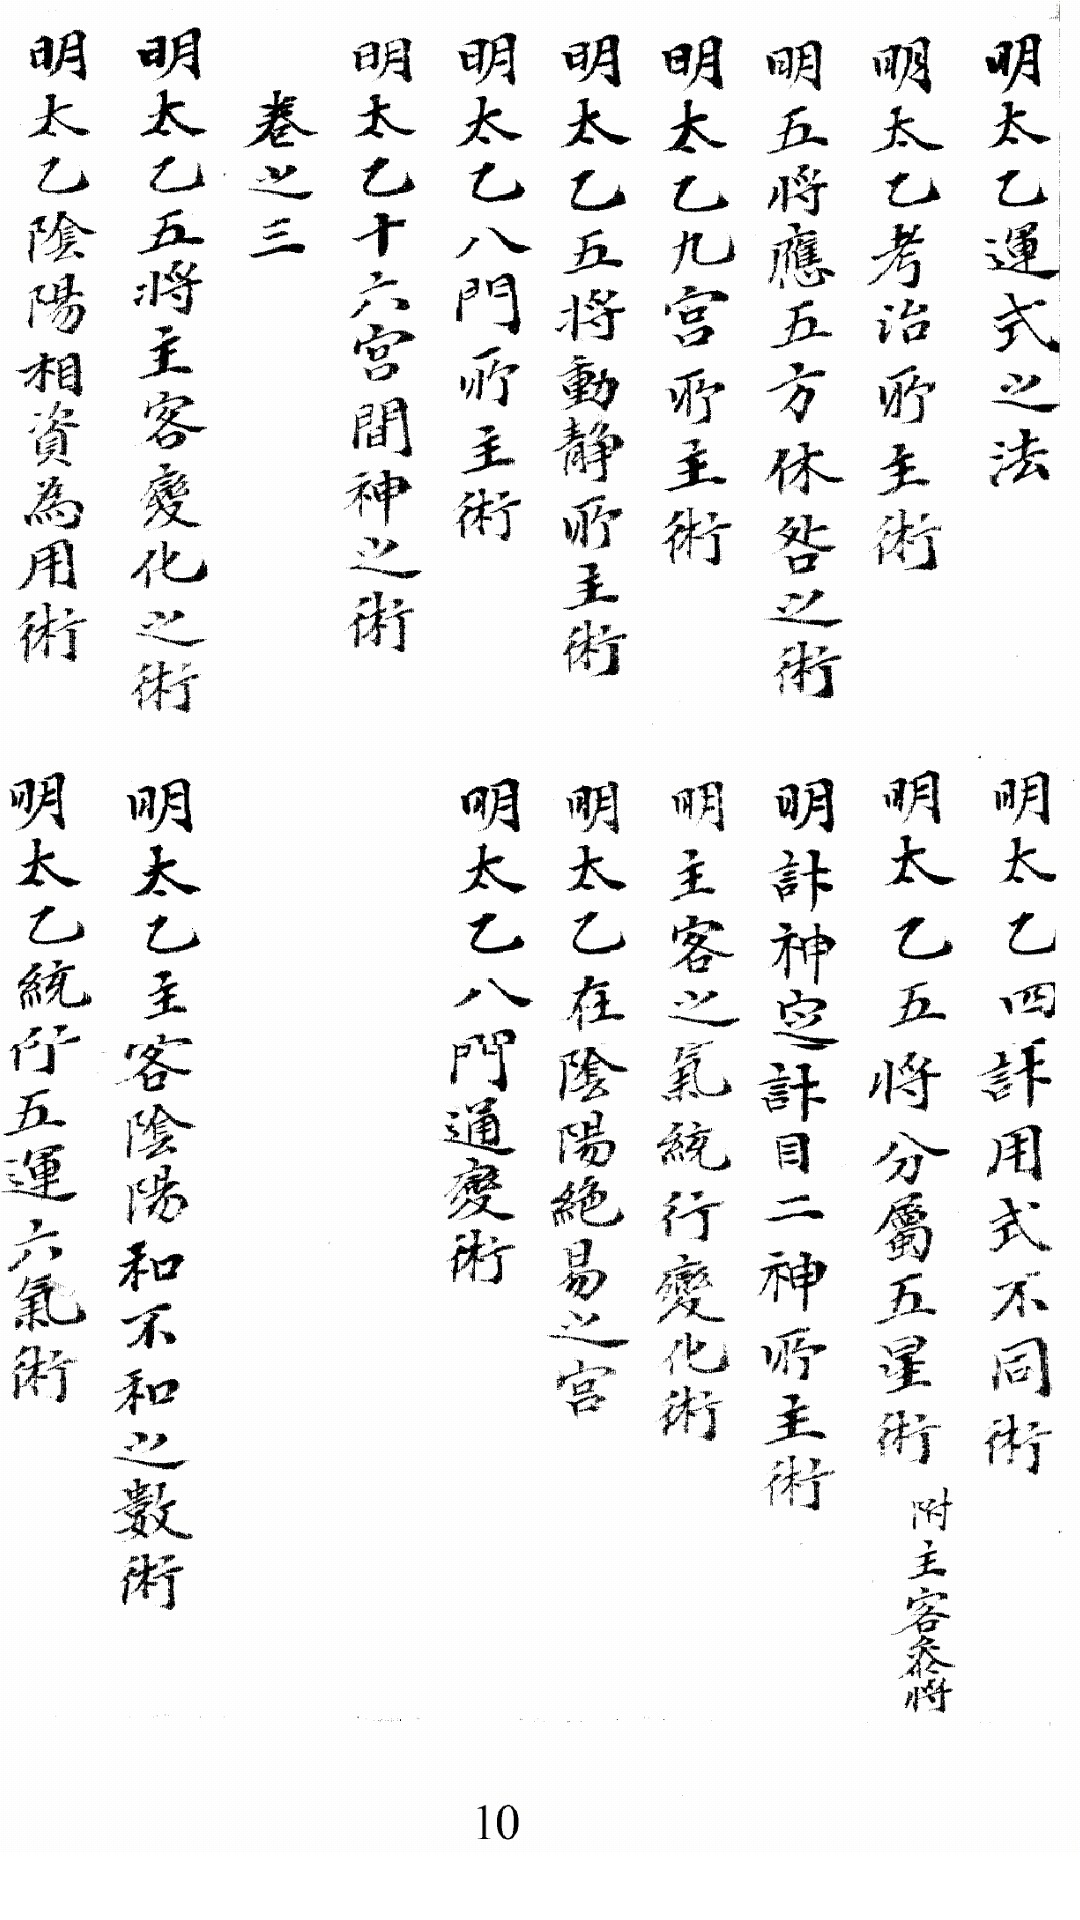 明太乙運式之法
明太乙四計用式不同術
明太乙考治所主術
明太乙五將分屬五星術
附主客叅將
明五將應五方休咎之術
明計神定計目二神所主術
明太乙九宮所主術
明主客之氣統行變化術
明太乙五將動靜所主術
明太乙在陰陽絕易之宮
明太乙八門所主術
明太乙八門通變術
明太乙十六宮間神之術
卷之三
明太乙五將主客變化之術
明太乙主客陰陽和不和之數術
明太乙陰陽相資為用術
明太乙統行五運六氣術
10